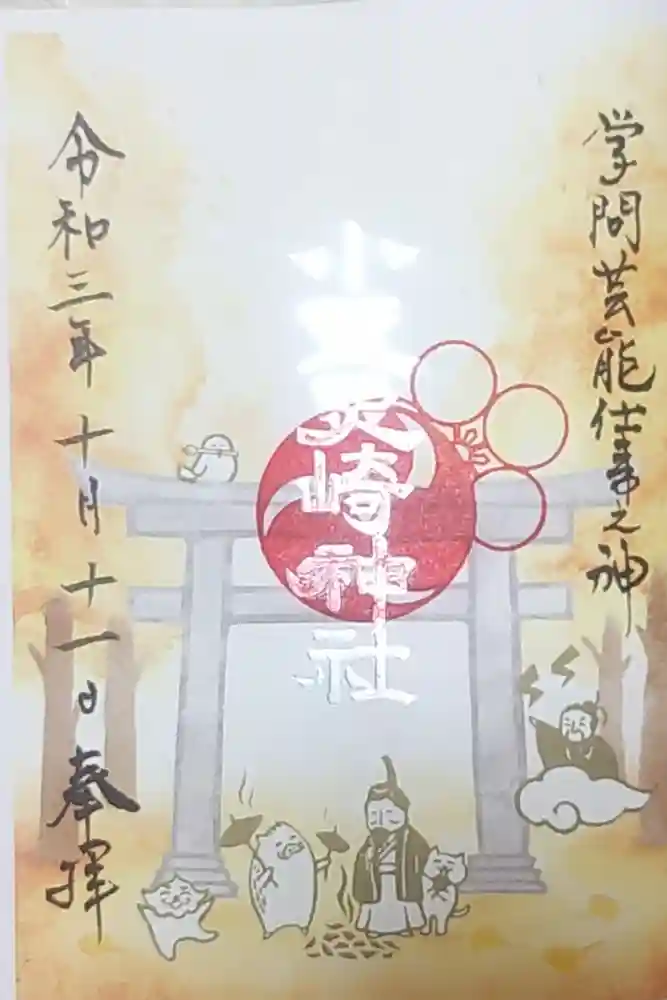 学問芸能仕事之神
小野崎神社
令和三年十月十一日奉拝